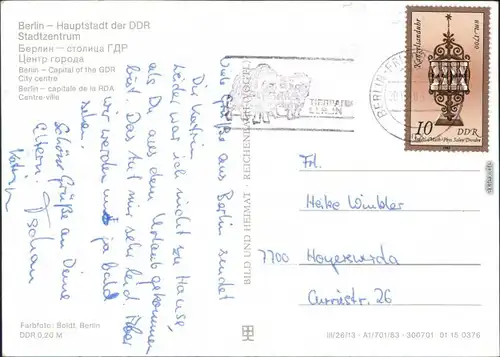 Berlin – Hauptstadt der DDR
Stadtzentrum
Берлин – столица ГДР
Центр города
Berlin – Capital of the GDR
City centre
Berlin – capitale de la RDA
Centre-ville
Viele Grüße aus Berlin sendet
Dir Katrin.
Leider war ich nicht zu Hause,
als Du aus dem Urlaub gekommen
bist. Das tut mir sehr leid. Aber
wir werden uns ja bald
sehen.
Schöne Grüße an Deine
Eltern. Tschau
Katrin
Farbfoto: Boldt, Berlin
DDR 0,20 M
BILD UND HEIMAT · REICHENBACH (VOGTL)
TIERPARK
BERLIN
BERLIN
Kanzelsanduhr
um 1700
10
DDR
Frl.
Heike Winkler
7700 Hoyerswerda
Curiestr. 26
III/26/13 · A1/701/83 · 300701 01 15 0376